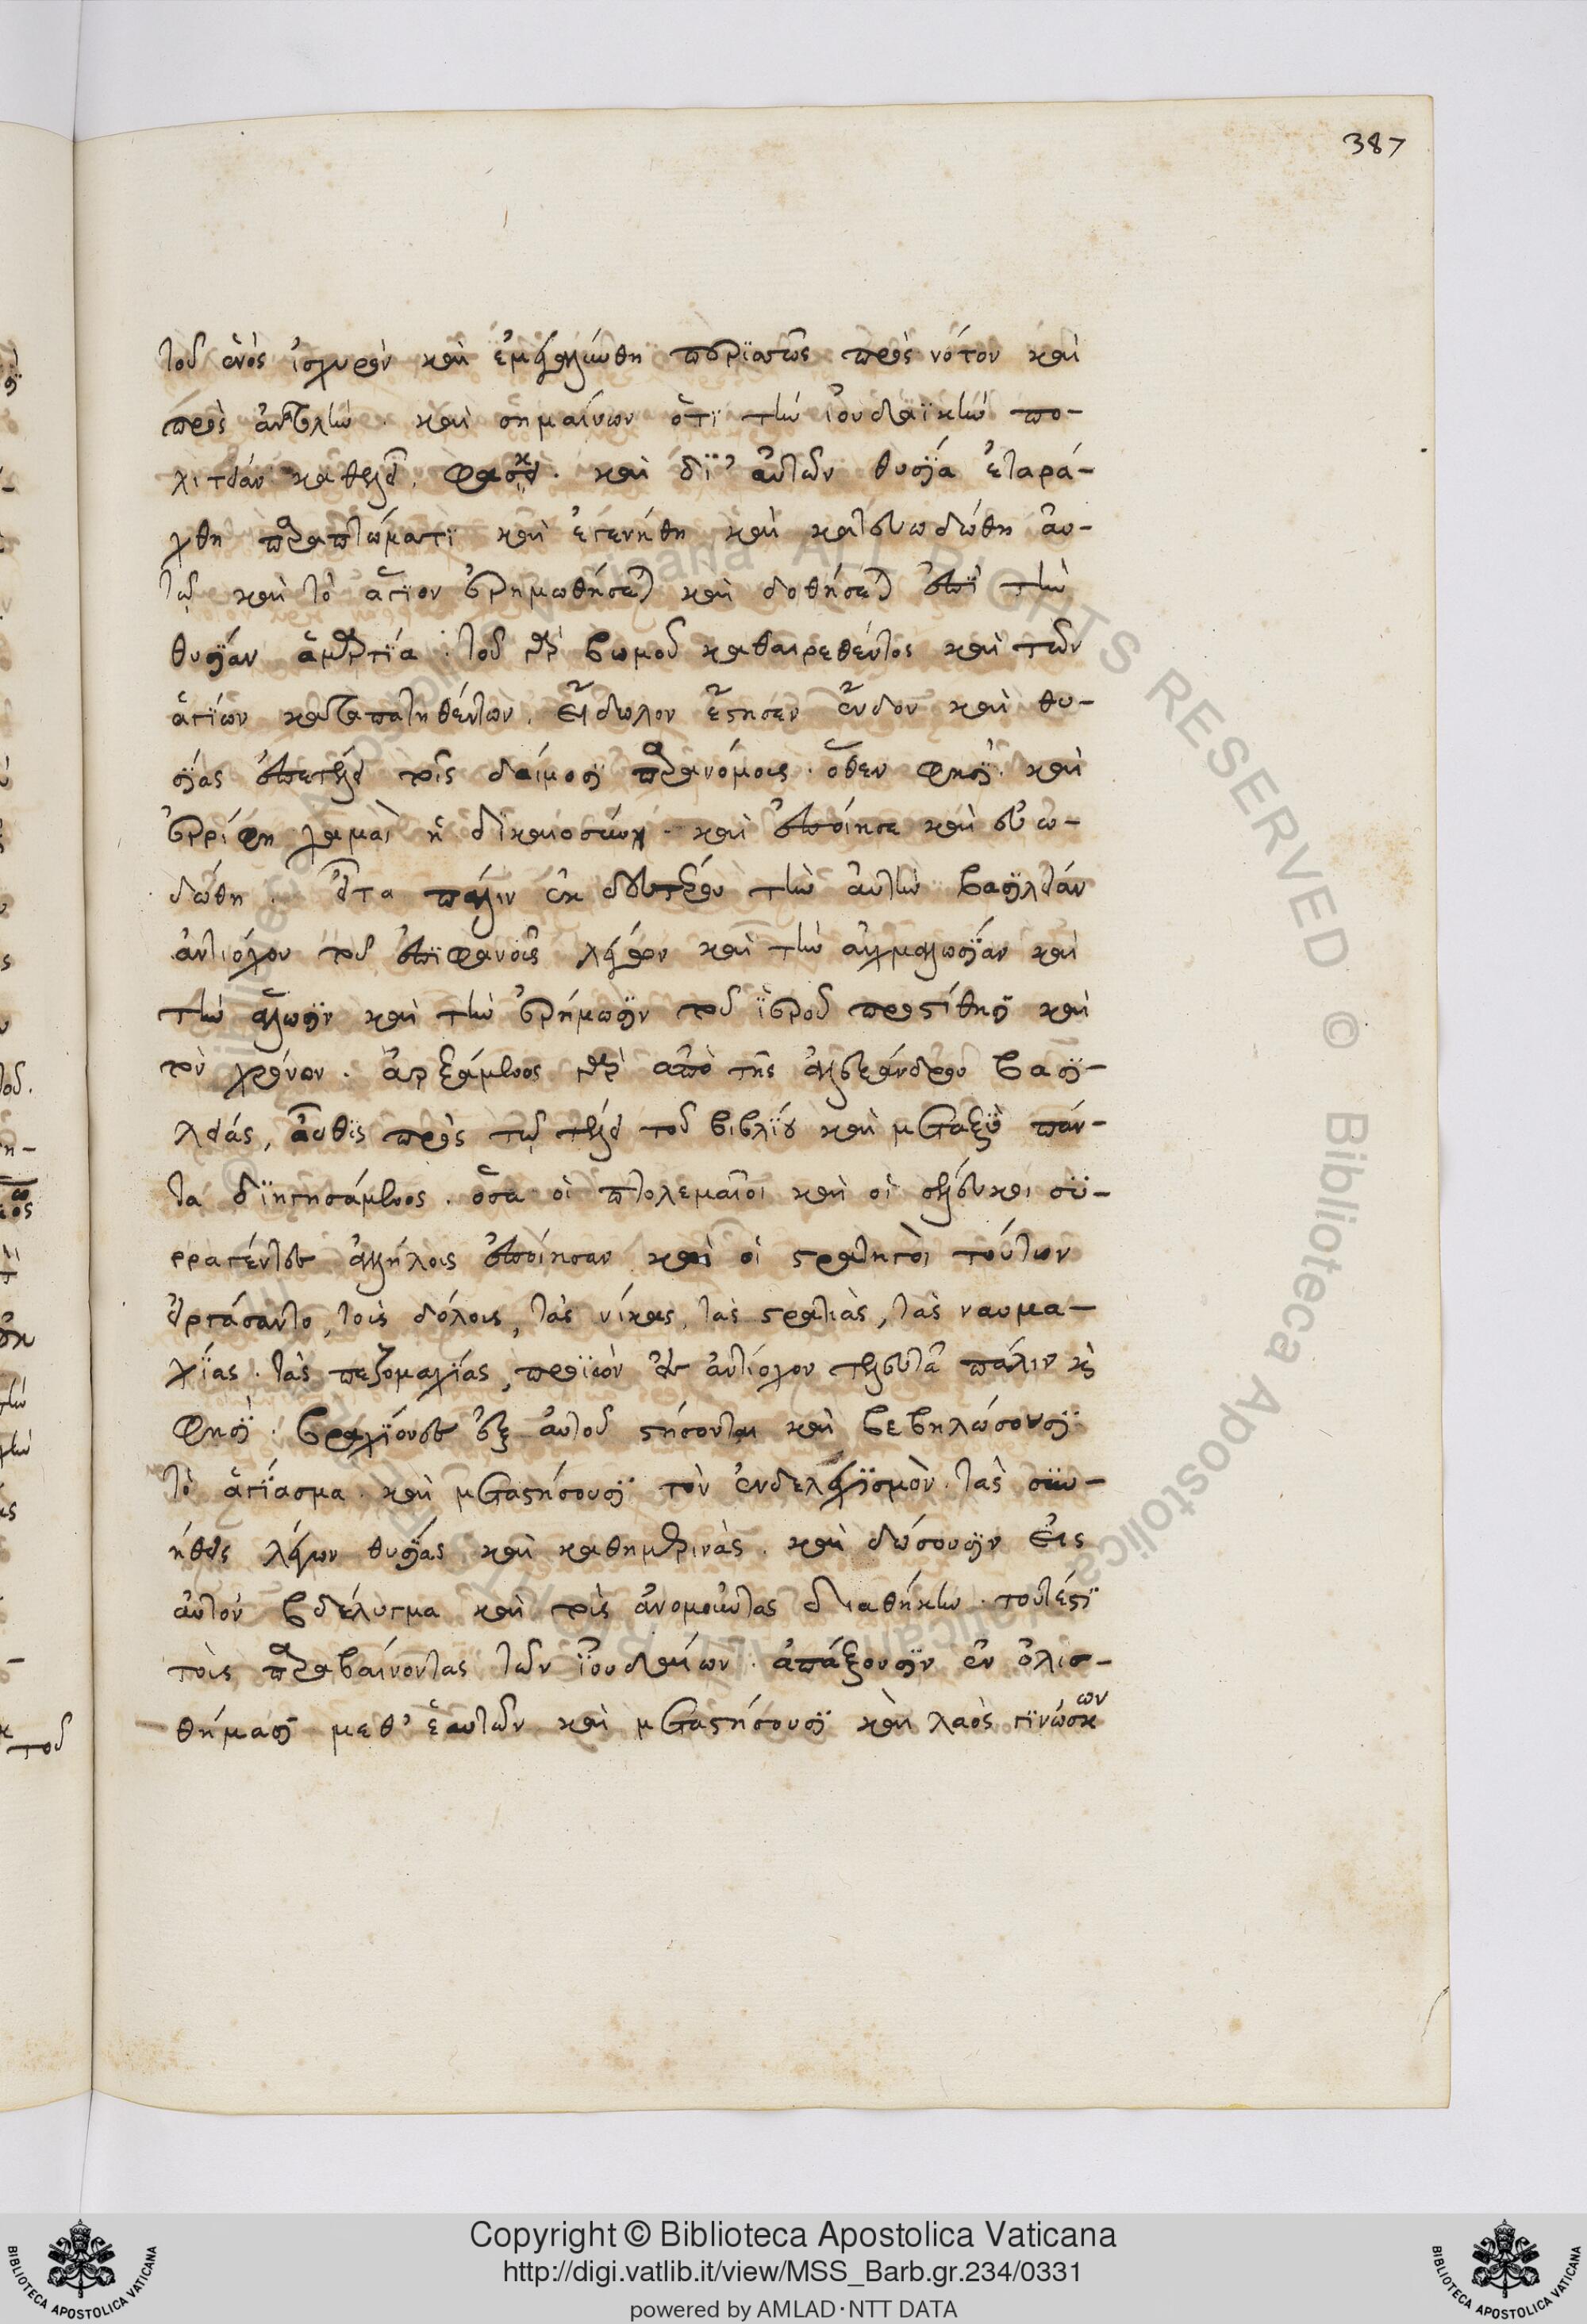 387
τοῦ ἑνὸς ἰσχυρὸν καὶ ἐμεγαλύνθη περισσῶς πρὸς νότον καὶ
πρὸς ἀνατολὴν. καὶ σημαίνων ὅτι τὴν ἰουδαϊκὴν πο-
λιτείαν καθελεῖ, φάσκει. καὶ δι᾽ αὐτῶν θυσία ἐταρά-
χθη παραπτώματι καὶ ἐγενήθη καὶ κατευωδώθη αὐ-
τῷ καὶ τὸ ἅγιον ἐρημωθήσεται καὶ δοθήσεται ἐπὶ τὴν
θυσίαν ἁμαρτία. τοῦ γὰρ βωμοῦ καθαιρεθέντος καὶ τῶν
ἁγίων καταπατηθέντων. εἴδωλον ἔστησεν ἔνδον καὶ θυ-
σίας ἐπετέλει τοῖς δαίμοσι παρανόμοις. ὅθεν φησί. καὶ
ἐρρίφη χαμαὶ ἡ δικαιοσύνη. καὶ ἐποίησε καὶ εὐω-
δώθη. εἶτα πάλιν ἐκ δευτέρου τὴν αὐτὴν βασιλείαν
ἀντιόχου τοῦ ἐπιφανοῦς λέγων καὶ τὴν αἰχμαλωσίαν καὶ
τὴν ἅλωσιν καὶ τὴν ἐρήμωσιν τοῦ ἱεροῦ προστίθησι καὶ
τὸν χρόνον. ἀρξάμενος γὰρ ἀπὸ τῆς ἀλεξάνδρου βασι-
λείας, αὖθις πρὸς τῷ τέλει τοῦ βιβλίου καὶ μεταξὺ πάν-
τα διηγησάμενος. ὅσα οἱ πτολεμαῖοι καὶ οἱ σέλευκοι συ-
ρραγέντες ἀλλήλοις ἐποίησαν καὶ οἱ στρατηγοὶ τούτων
εἰργάσαντο, τοῖς δόλοις, τὰς νίκας, τὰς στρατιὰς, τὰς ναυμα-
χίας. τὰς πεζομαχίας, προϊὼν εἰς ἀντίοχον τελευτᾷ πάλιν καὶ
φησί. βραχίονες ἐξ αὐτοῦ στήσονται καὶ βεβηλώσουσι
τὸ ἁγίασμα. καὶ μεταστήσουσι τὸν ἐνδελεχισμὸν. τὰς συν-
ήθεις λέγων θυσίας καὶ καθημερινὰς. καὶ δώσουσιν εἰς
αὐτὸν βδέλυγμα καὶ τοὺς ἀνομοῦντας διαθήκην. τουτέστι
τοὺς παραβαίνοντας τῶν ἰουδαίων. ἀπάξουσιν ἐν ὀλισ-
θήμασι μεθ᾽ ἑαυτῶν καὶ μεταστήσουσι καὶ λαὸς γινώσκων
Copyright © Biblioteca Apostolica Vaticana
http://digi.vatlib.it/view/MSS_Barb.gr.234/0331
powered by AMLAD·NTT DATA